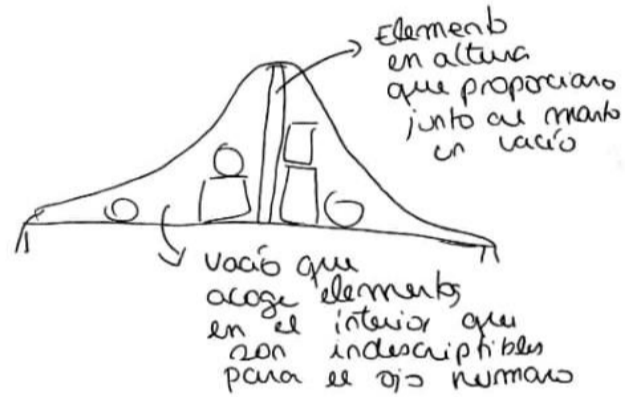 Elemento
en altura
que proporciona
junto al manto
un vacío
vacío que
acoge elementos
en el interior que
son indescriptibles
para el ojo humano